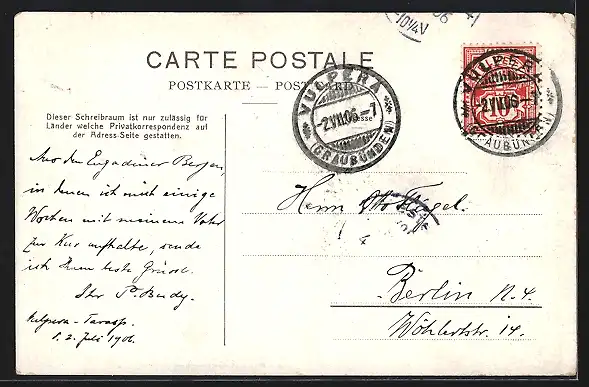 CARTE POSTALE
POSTKARTE — POSTCARD
Dieser Schreibraum ist nur zulässig für
Länder welche Privatkorrespondenz auf
der Adress-Seite gestatten.
Adresse
VULPERA
-2.VII.06.-7
(GRAUBÜNDEN)
VULPERA
-2.VII.06.-
(GRAUBÜNDEN)
10
-10¼V
Aus den Engadiner Bergen,
in denen ich mich einige
Wochen mit meinem Vater
zur Kur aufhalte, sende
ich Ihnen beste Grüsse.
Ihr P.
Vulpera-Tarasp.
2. Juli 1906.
Herrn Otto
Berlin N. 4.
Wöhlertstr. 14.